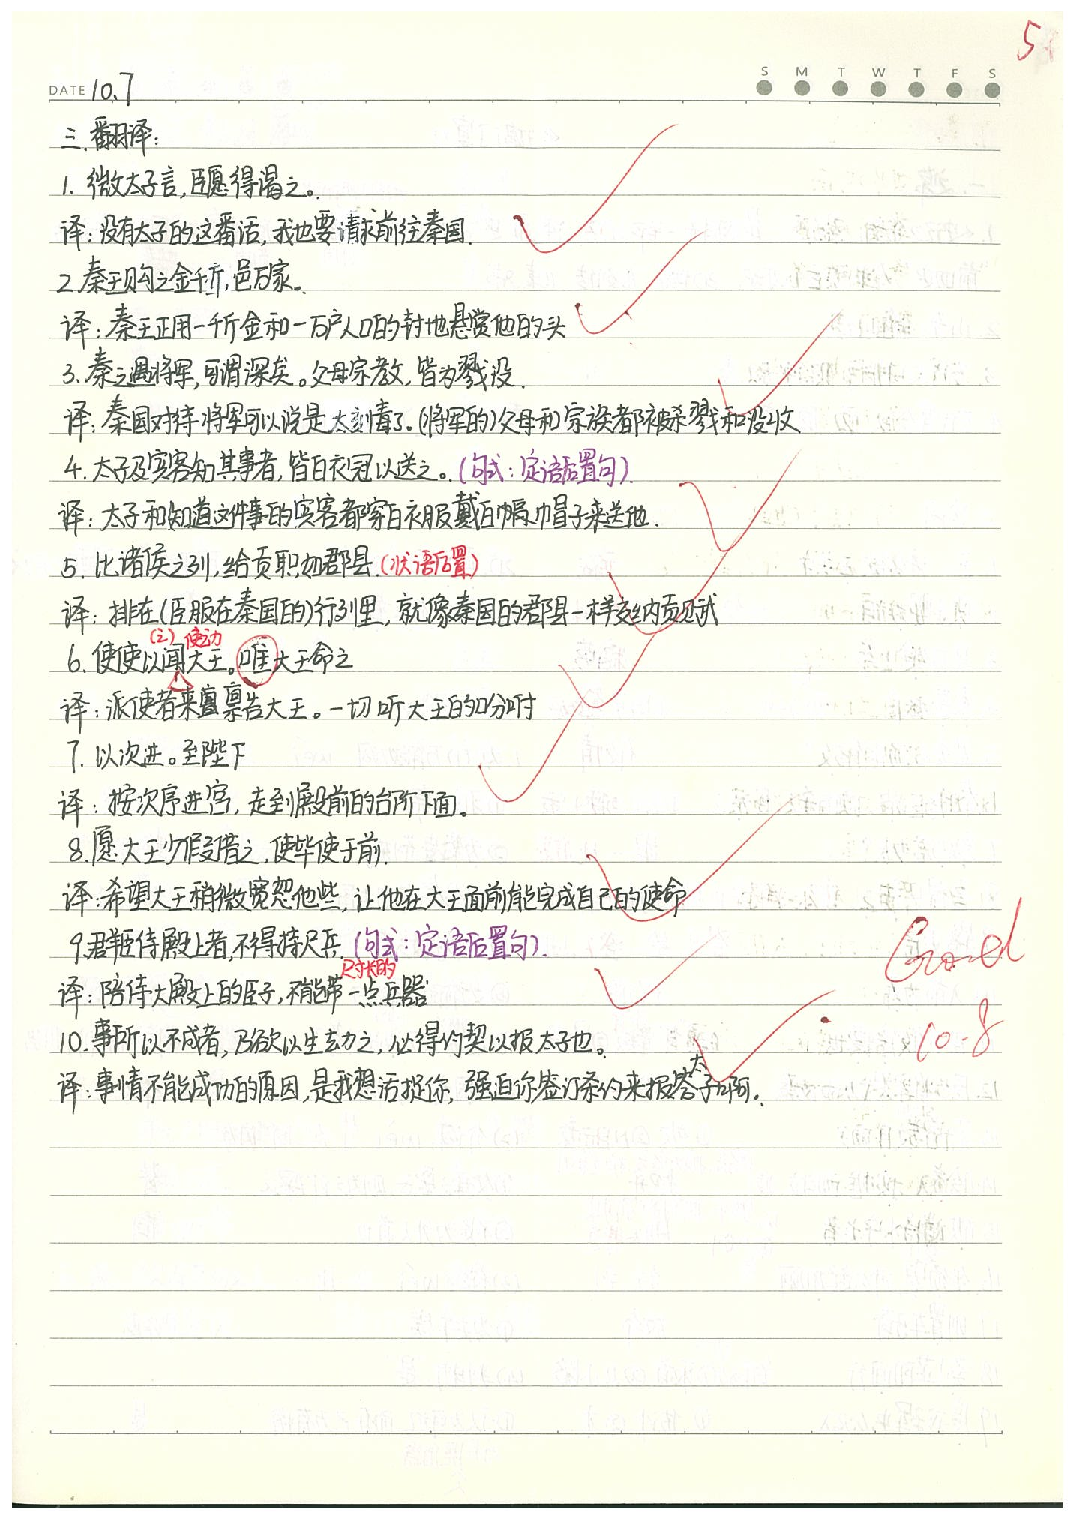 5
S M T W T F S
DATE 10.7
三.翻译:
1. 微太子言,臣愿得谒之。
译:没有太子的这番话,我也要请求前往秦国.
2.秦王购之金千斤,邑万家。
译:秦王正用一千斤金和一万户人口的封地悬赏他的头
3.秦之遇将军,可谓深矣。父母宗教,皆为戮没.
译:秦国对待将军可以说是太刻毒了。(将军的)父母和宗族都被杀戮和没收
4.太子及宾客知其事者,皆白衣冠以送之。(句式:定语后置句)
译:太子和知道这件事的宾客都穿白衣服戴白帽巾帽子来送他.
5.比诸侯之列,给贡职如郡县.(状语后置)
译:排在(臣服在秦国的)行列里,就像秦国的郡县一样交纳贡赋
(之) 使动
6.使使以闻大王。唯大王命之
译:派使者来禀告大王。一切听大王的吩咐
7.以次进。至陛下
译:按次序进宫,走到殿前的台阶下面。
8.愿大王少假借之.使毕使于前.
译:希望大王稍微宽恕他些,让他在大王面前能完成自己的使命
9.群臣侍殿上者,不得持尺兵.(句式:定语后置句).
尺寸长的
译:陪侍大殿上的臣子,不能带一点兵器
10.事所以不成者,乃欲以生劫之,必得约契以报太子也。
译:事情不能成功的原因,是我想活捉你,强迫你签订条约来报答太子啊.
Good
10.8